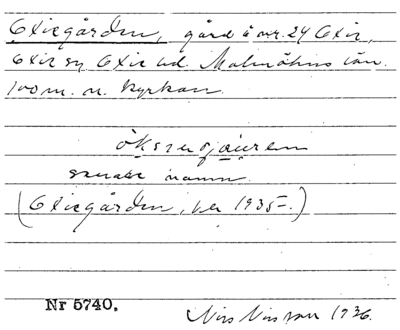 Oxiegården, gård å nr. 24 Oxie,
Oxie sn Oxie hd. Malmöhus län.
100 m. n. kyrkan
senare namn
(Oxiegården, 1935.)
Nr 5740. Nils Nilsson 1936.